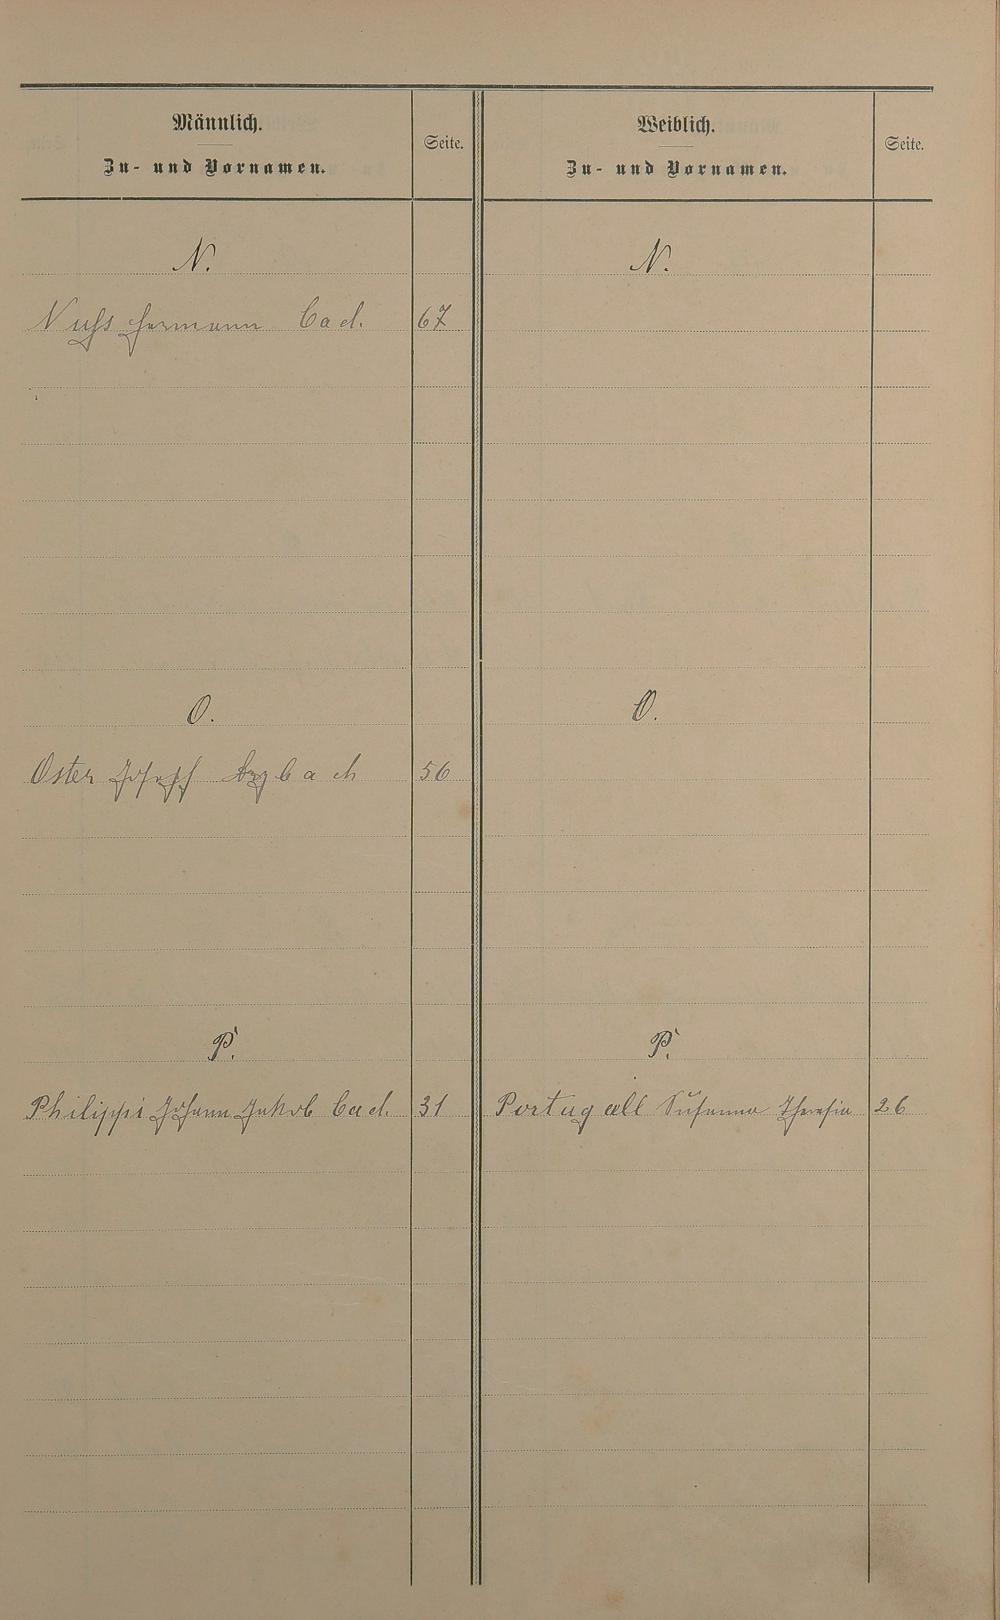 Männlich.
Zu- und Vornamen.
Seite.
Weiblich.
Zu- und Vornamen.
Seite.
N.
N.
Nuſs Hermann Cad. 67
O.
O.
Oster Joseph 56
P.
P.
Philippi Johann Jakob Cad. 31
Portugall Susanna Theresia 26